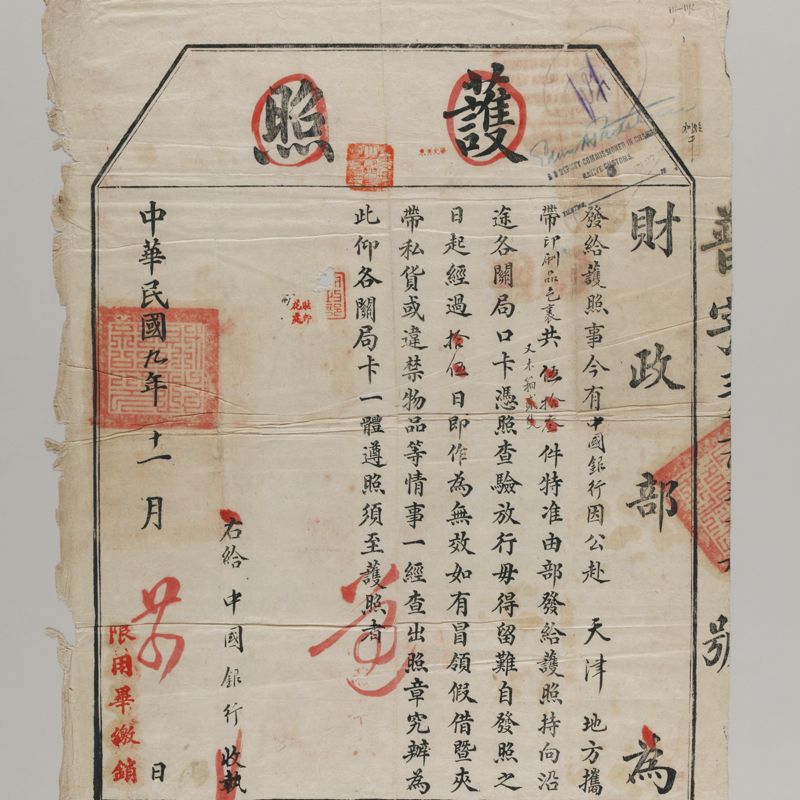 護照
財政部 為
發給護照事今有中國銀行因公赴 天津 地方攜
帶印刷品包裹共伍拾叁件特准由部發給護照持向沿
又木箱貳隻
途各關局口卡憑照查驗放行毋得留難自發照之
日起經過拾伍日即作為無效如有冒領假借暨夾
帶私貨或違禁物品等情事一經查出照章究辦為
此仰各關局卡一體遵照須至護照者
右給 中國銀行 收執
中華民國九年十一月 日
限用畢繳銷
號
DEPUTY COMMISSIONER IN CHARGE